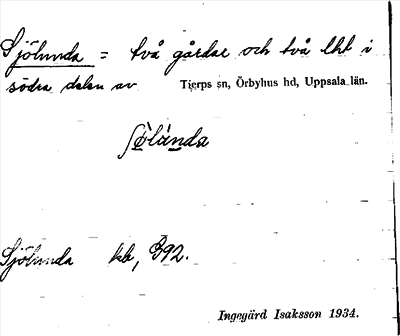 Sjölunda = två gårdar och två lht i
södra delen av Tierps sn, Örbyhus hd, Uppsala län.
ʃö̀lúnda
Sjölunda kb, 392.
Ingegärd Isaksson 1934.